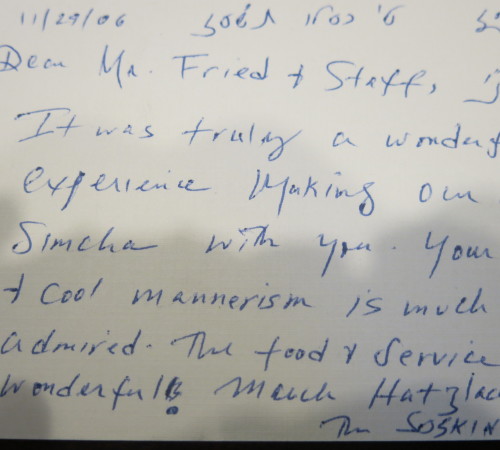 11/29/06
Dear Mr. Fried & Staff,
It was truly a wonderf
experience Making our
Simcha with you. Your
& cool mannerism is much
admired. The food & Service
wonderful! Much Hatzlac
The SOSKIN